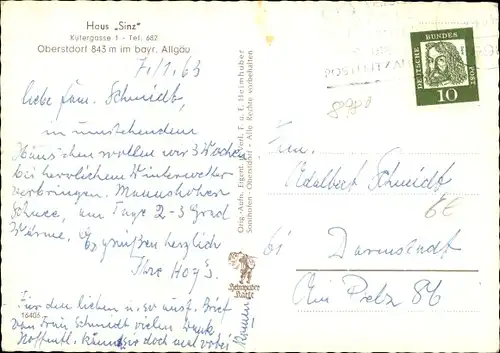 Haus „Sinz"
Kutergasse 1 - Tel. 682
Oberstdorf 843 m im bayr. Allgäu
7/1.63
Liebe Fam. Schmidt,
in umstehendem
Häuschen wollen wir 3 Wochen
bei herrlichem Winterwetter
verbringen. Mannshoher
Schnee, am Tage 2-3 Grad
Wärme. Es grüßen herzlich
Ihre
Für den lieben u. so ausf. Brief
von Frau Schmidt vielen Dank
Hoffentl. können doch mal vorbei
kommen!
16406
Orig.-Aufn., Eigent. u. Verl. F. u. F. Heimhuber
Sonthofen - Oberstdorf - Alle Rechte vorbehalten
Heimhuber
Karte
DEUTSCHE BUNDESPOST
10
Adalbert Schmidt
bei Darmstadt